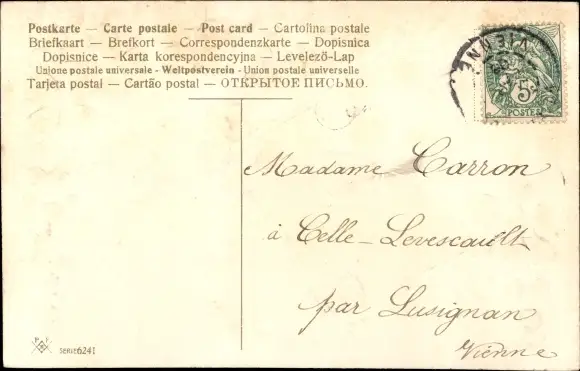 Postkarte — Carte postale — Post card — Cartolina postale
Briefkaart — Brefkort — Correspondenzkarte — Dopisnica
Dopisnice — Karta korespondencyjna — Levelező-Lap
Unione postale universale - Weltpostverein - Union postale universelle
Tarjeta postal — Cartão postal — ОТКРЫТОЕ ПИСЬМО.
VIENNE
5
POSTES
Madame Carron
à Celle-Levescault
par Lusignan
Vienne
SERIE 6241